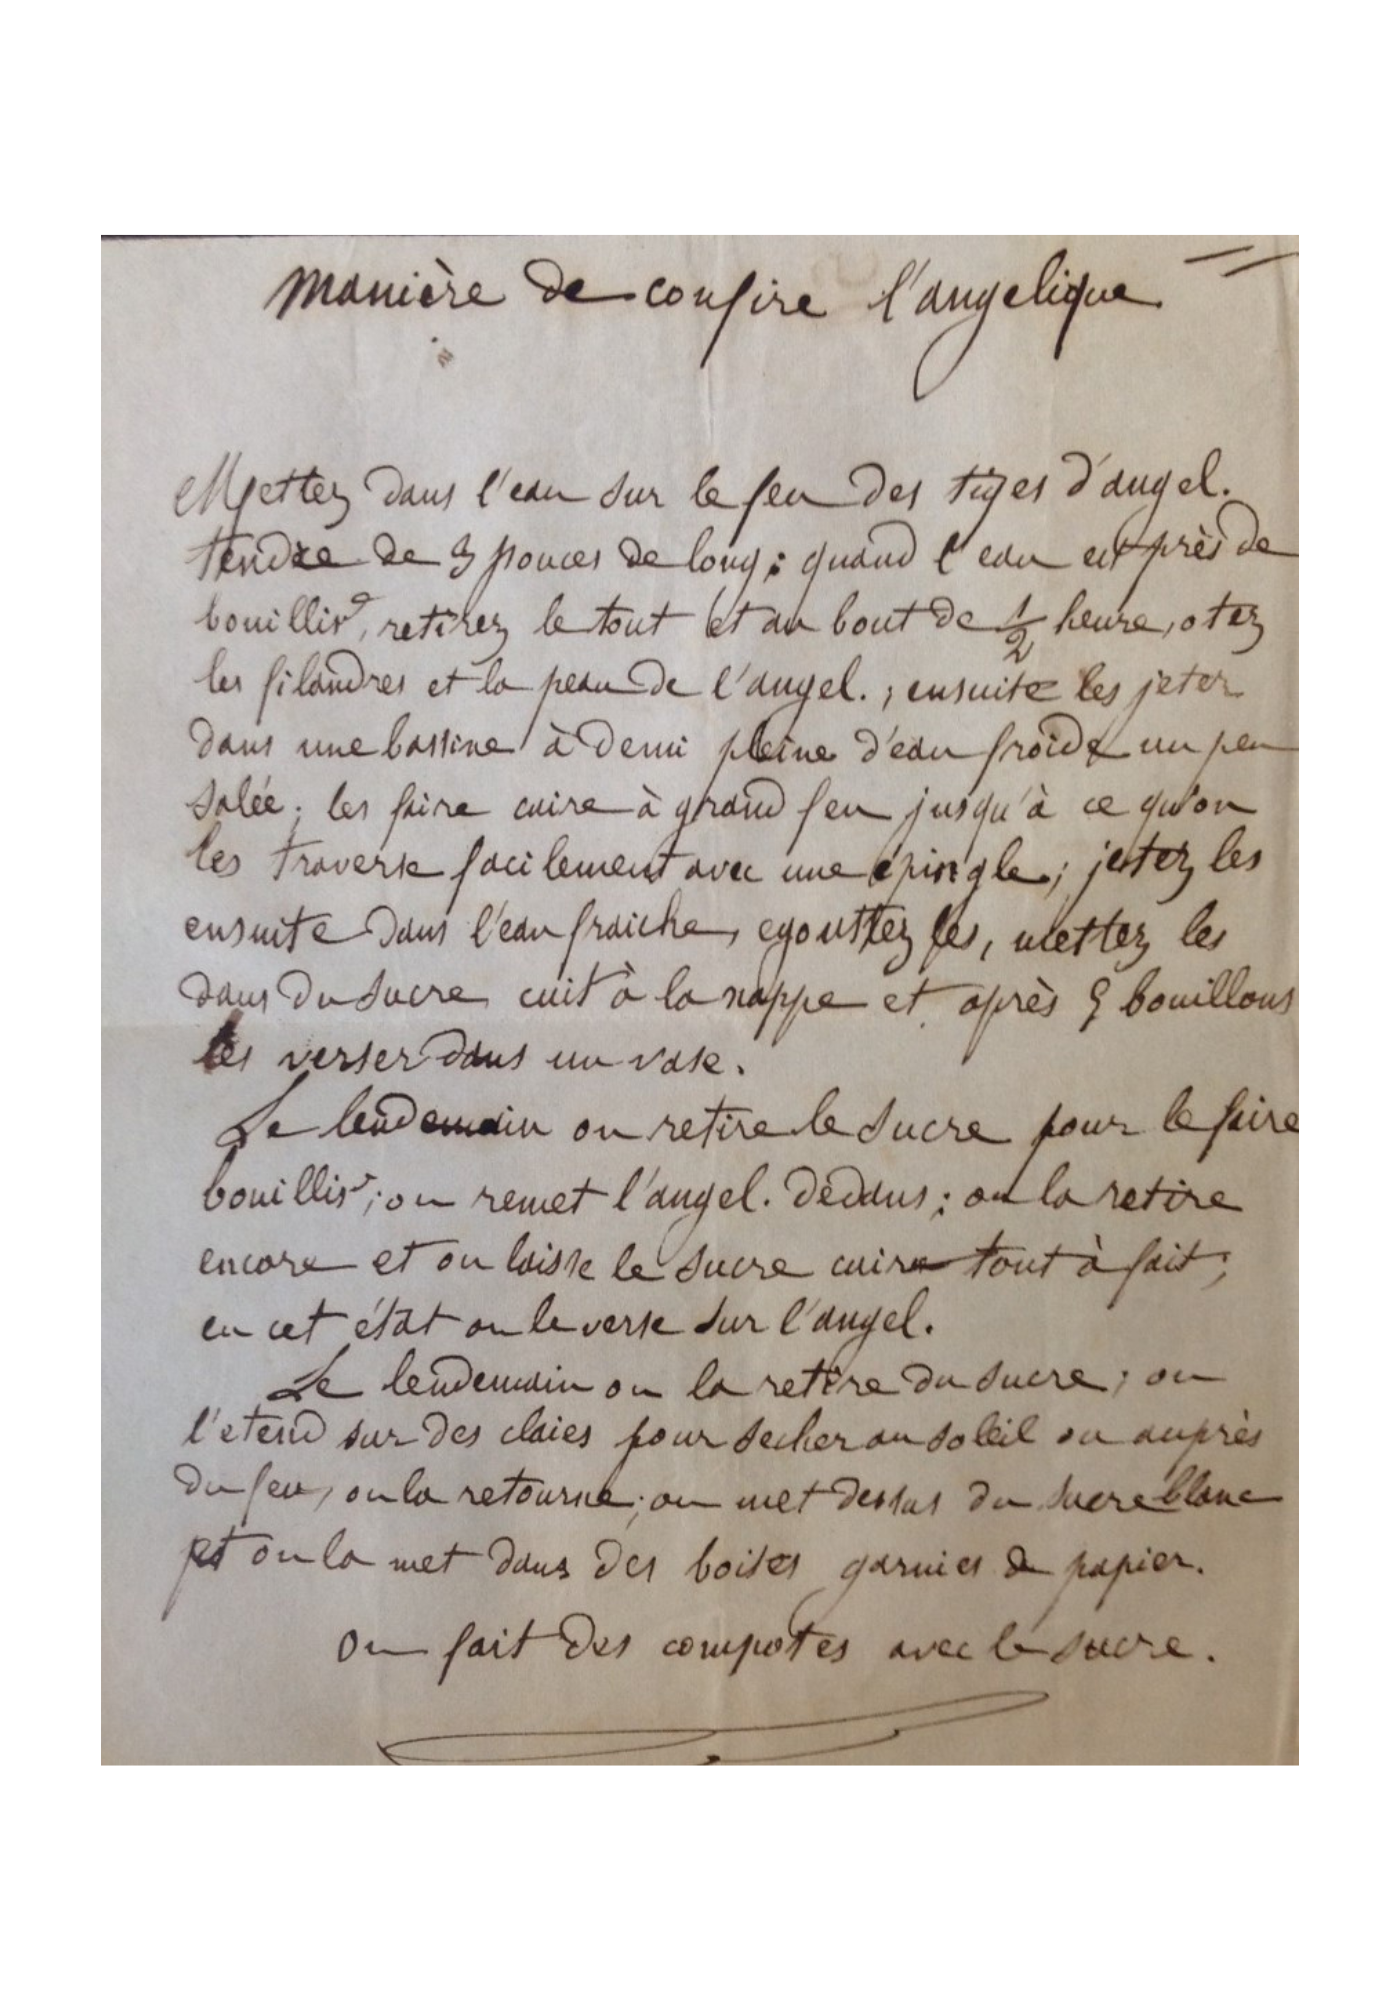 Manière de confire l'angelique
Mettez dans l'eau sur le feu des tiges d'angel.
tendre de 3 pouces de long; quand l'eau est près de
bouillir, retirez le tout et au bout de 1/2 heure, otez
les filandres et la peau de l'angel.; ensuite les jeter
dans une bassine à demi pleine d'eau froide un peu
salée; les faire cuire à grand feu jusqu'à ce qu'on
les traverse facilement avec une épingle; jetez les
ensuite dans l'eau fraiche, egouttez les, mettez les
dans du sucre cuit à la nappe et après bouillons
les verser dans un vase.
Le lendemain on retire le sucre pour le faire
bouillir; on remet l'angel. dedans; on la retire
encore et on laisse le sucre cuire tout à fait;
en cet état on le verse sur l'angel.
Le lendemain on la retire du sucre; on
l'etend sur des claies pour secher au soleil ou auprès
du feu, on la retourne; on met dessus du sucre blanc
et on la met dans des boites garnies de papier.
On fait des compotes avec le sucre.